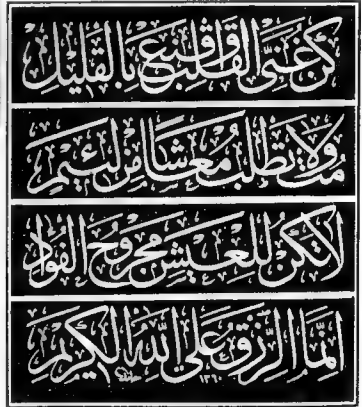 كُنْ غَنِىَّ القَلْبِ وَاقْنَعْ بِالقَلِيْلِ
مُتْ وَلاَ تَطْلُبْ مَعَاشاً مِنْ لَئِيْمِ
لاَ تَكُنْ لِلْعَيْشِ مَجْرُوحَ الفُؤَادِ
اِنَّمَا الرِّزْقُ عَلَى اللهِ الْكَرِيْمِ